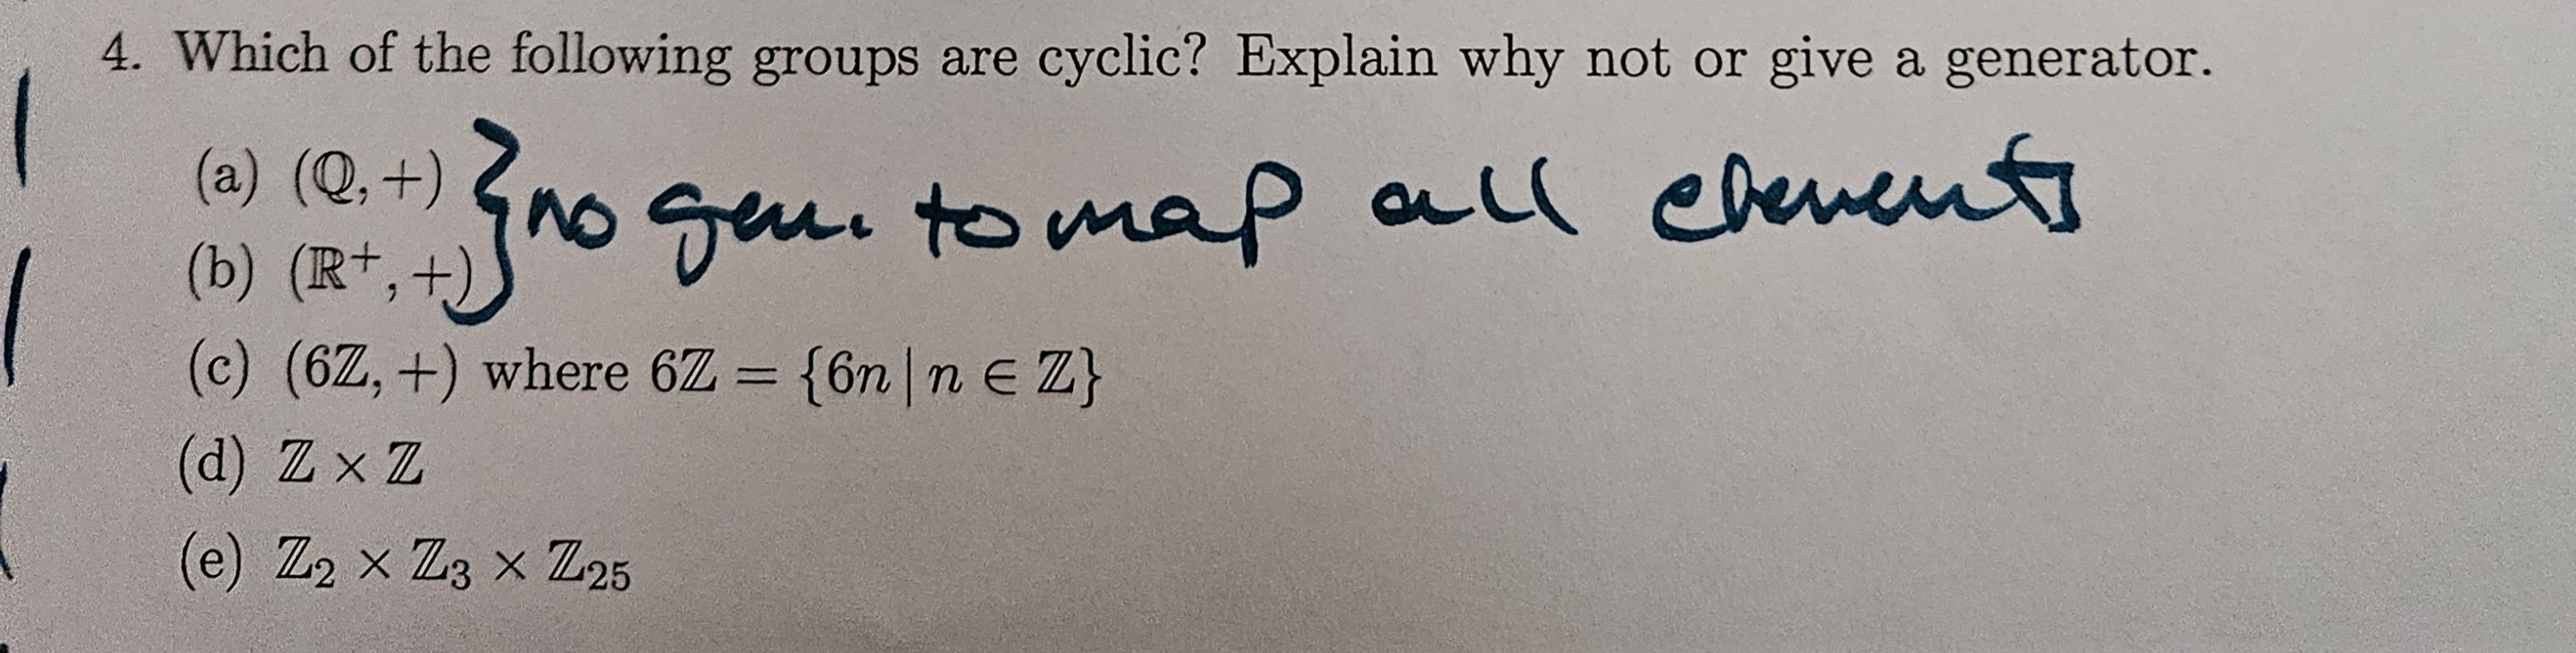 4. Which of the following groups are cyclic? Explain why not or give a generator.
(a) (ℚ, +)
} no gen. to map all elements
(b) (ℝ⁺, +)
(c) (6ℤ, +) where 6ℤ = {6n | n ∈ ℤ}
(d) ℤ × ℤ
(e) ℤ₂ × ℤ₃ × ℤ₂₅